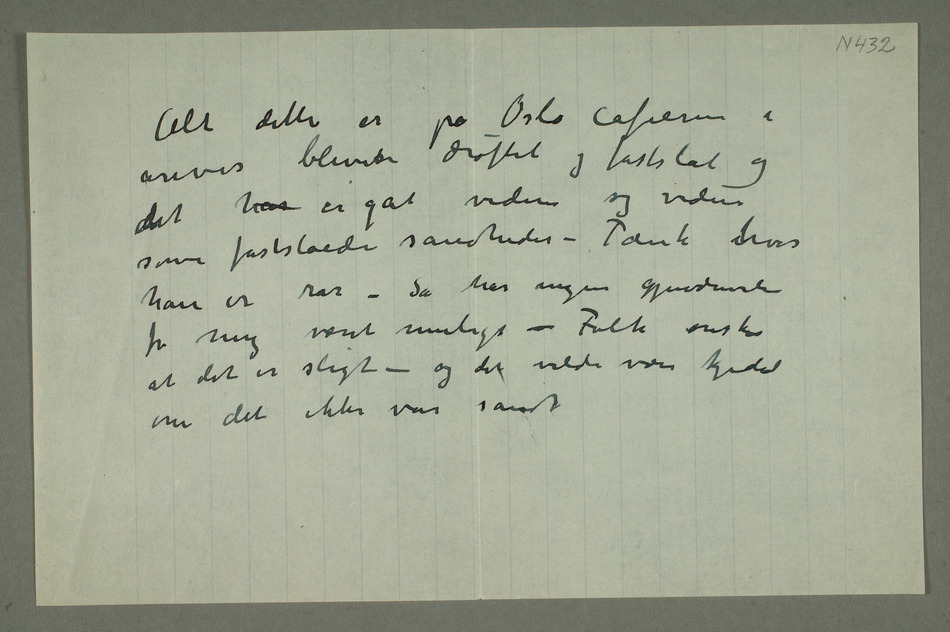 N432
Alt dette er på Oslo cafeerne i
årevis blevet drøftet og fastslåt og
det har er gåt videre og videre
som fastslåede sandheder – Tænk hvor
han er rar – Så har ingen gjendrivelse
for meg været muligt – Folk ønsker
at det er sligt – og det vilde være kjedel
om det ikke var sandt